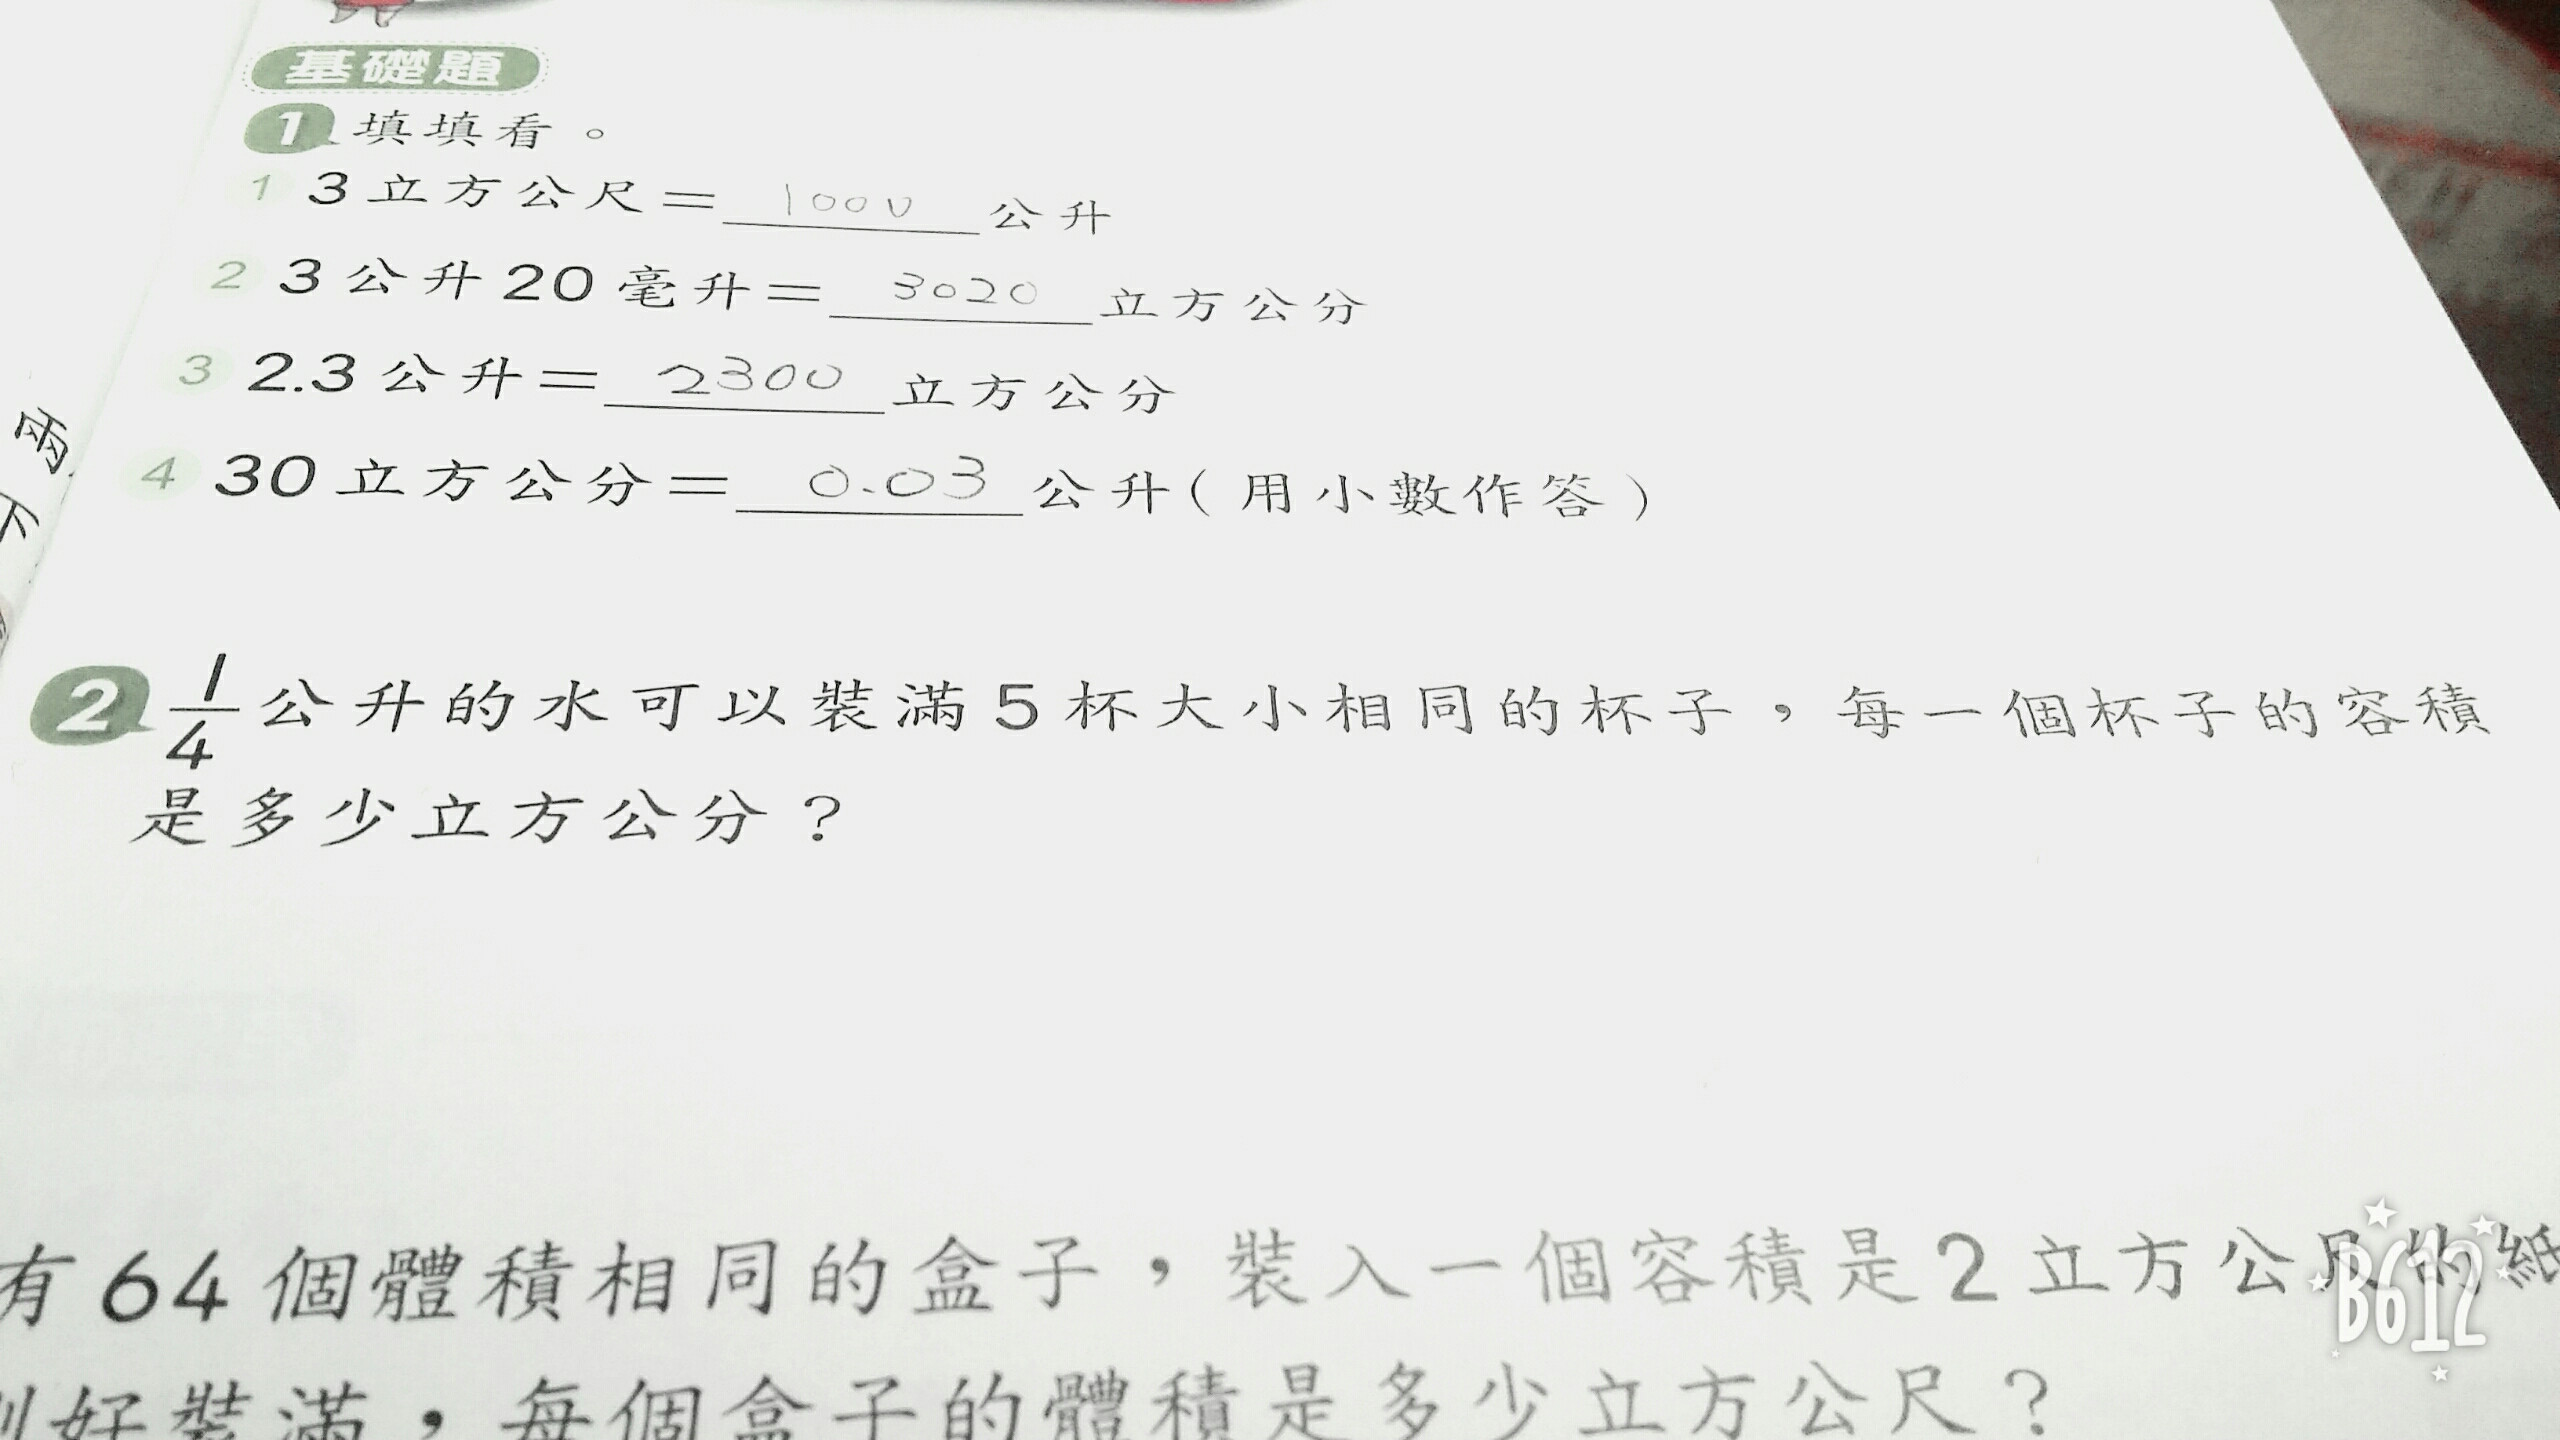 基礎題
1 填填看。
1 3立方公尺=1000公升
2 3公升20毫升=3020立方公分
3 2.3公升=2300立方公分
4 30立方公分=0.03公升(用小數作答)
兩
下
2 1/4公升的水可以裝滿5杯大小相同的杯子,每一個杯子的容積
是多少立方公分?
有64個體積相同的盒子,裝入一個容積是2立方公尺的紙
好裝滿,每個盒子的體積是多少立方公尺?
B612